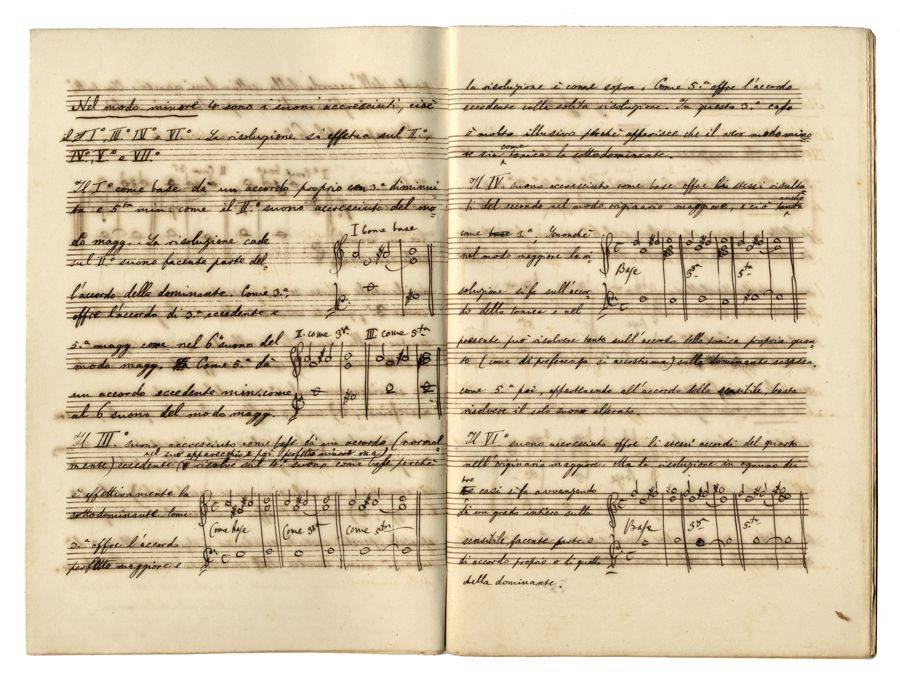 Nel modo minore 4 sono i suoni accresciuti, cioè
il I°, III° IV° e VI°. La risoluzione si effettua sul II°,
IV°, V° e VII°
Il I° come base dà un accordo proprio con 3ª diminui
ta e 5ta min. come il II° suono accresciuto del mo-
do magg. La risoluzione cade
sul II° suono facente parte del-
l'accordo della dominante. Come 3ª,
offre l'accordo di 3ª eccedente e
I come base
5ª magg come nel 6° suono del
modo magg. Come 5ª dà
un accordo eccedente min. come
al 6 suono del modo magg.
I. come 3ra III come 5ta
Il III° suono, accresciuto come base dà un accordo (normal
nel suo apparecchio e poi perfetto minore ma)
mente) eccedente risolve sul 4° suono come base perchè
è effettivamente la
sottodominante. Come
3ª offre l'accordo
perfetto maggiore e
Come base Come 3ra Come 5ta
la risoluzione è come sopra. Come 5ª offre l'accordo
eccedente colla solita risoluzione. In questo 3° capo
è molto illusivo perchè apparisce che il vero modo mino
re sia come tonica la sottodominante.
Il IV suono accresciuto come base offre li stessi risulta
ti del secondo nel modo originario maggiore, e ciò anche
come 3ª, Fuorchè
nel modo maggiore la ri
soluzione si fa sull'accor-
do della tonica e nel
Base 3ra 5ta
presente può risolvere tanto sull'accordo della tonica propria quan
to (come di preferenza si accostuma) sulla dominante sospesa.
come 5ª poi, appartenendo all'accordo della sensibile, basta
risolvere il solo suono alterato.
Il VI° suono accresciuto offre li stessi accordi del quarto
nell'originario maggiore. Ma la risoluzione in ognuno dei
tre casi si fa avvanzando
di un grado intiero sulla
sensibile facente parte o
di accordo proprio o di quello
della dominante.
Base 3ra 5ta